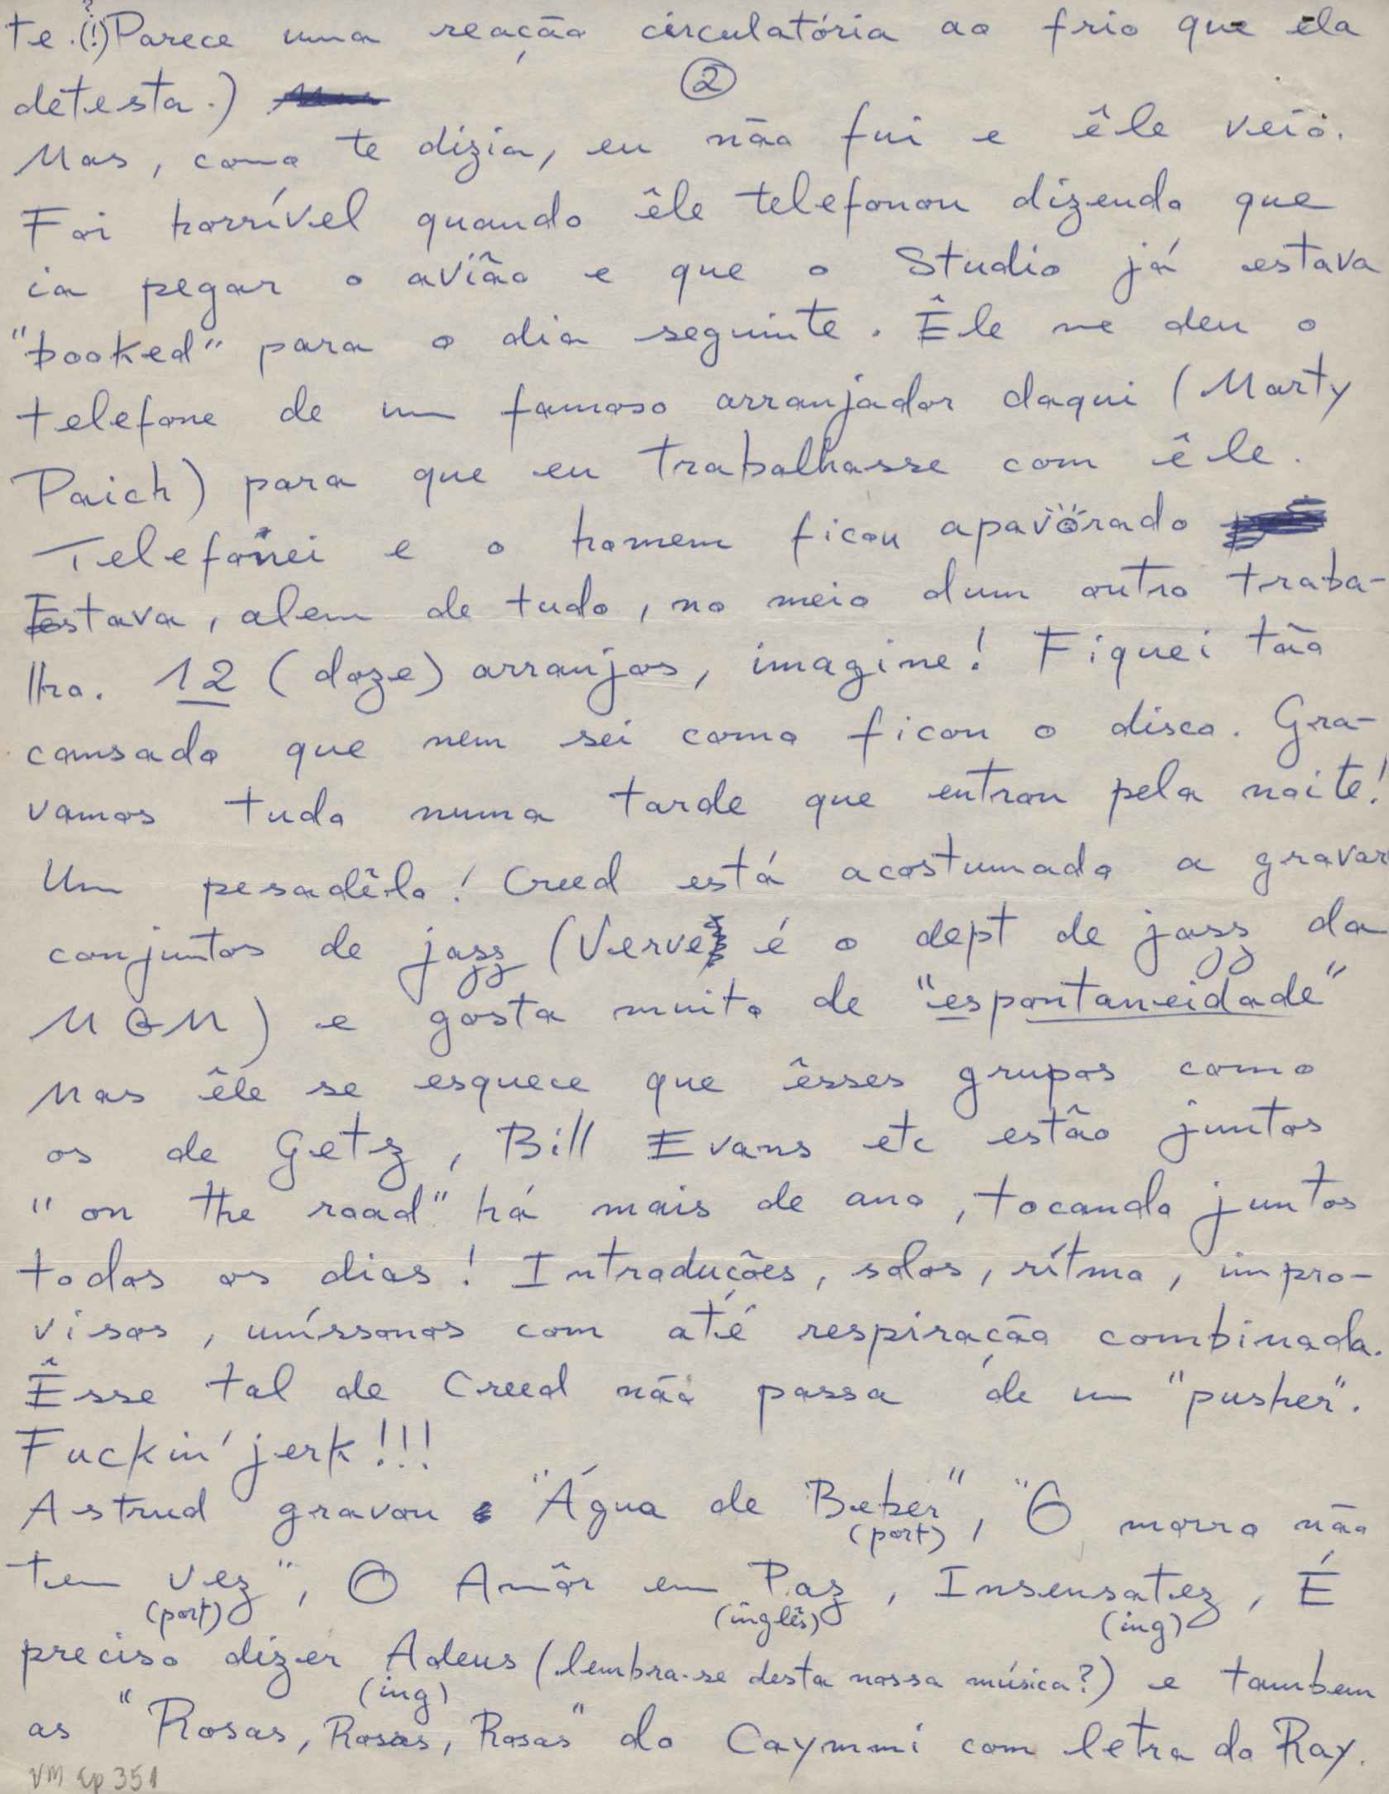 te.(!?) Parece uma reação circulatória ao frio que ela
②
detesta.)
Mas, como te dizia, eu não fui e êle veio.
Foi horrível quando êle telefonou dizendo que
ia pegar o avião e que o Studio já estava
"booked" para o dia seguinte. Êle me deu o
telefone de um famoso arranjador daqui (Marty
Paich) para que eu trabalhasse com êle.
Telefonei e o homem ficou apavorado
Estava, alem de tudo, no meio dum outro traba-
lho. 12 (doze) arranjos, imagine! Fiquei tão
cansado que nem sei como ficou o disco. Gra-
vamos tudo numa tarde que entrou pela noite!
Um pesadêlo! Creed está acostumado a gravar
conjuntos de jazz (Verve é o dept de jazz da
MGM) e gosta muito de "espontaneidade"
Mas êle se esquece que êsses grupos como
os de Getz, Bill Evans etc estão juntos
"on the road" há mais de ano, tocando juntos
todos os dias! Introduções, solos, rítmo, impro-
visos, uníssonos com até respiração combinada.
Êsse tal de Creed não passa de um "pusher".
Fuckin' jerk!!!
Astrud gravou "Água de Beber", "O morro não
(port)
tem vez", O Amôr em Paz, Insensatez, É
(port) (inglês) (ing)
preciso dizer Adeus (lembra-se desta nossa música?) e tambem
(ing)
as "Rosas, Rosas, Rosas" do Caymmi com letra do Ray.
VM Cp 351